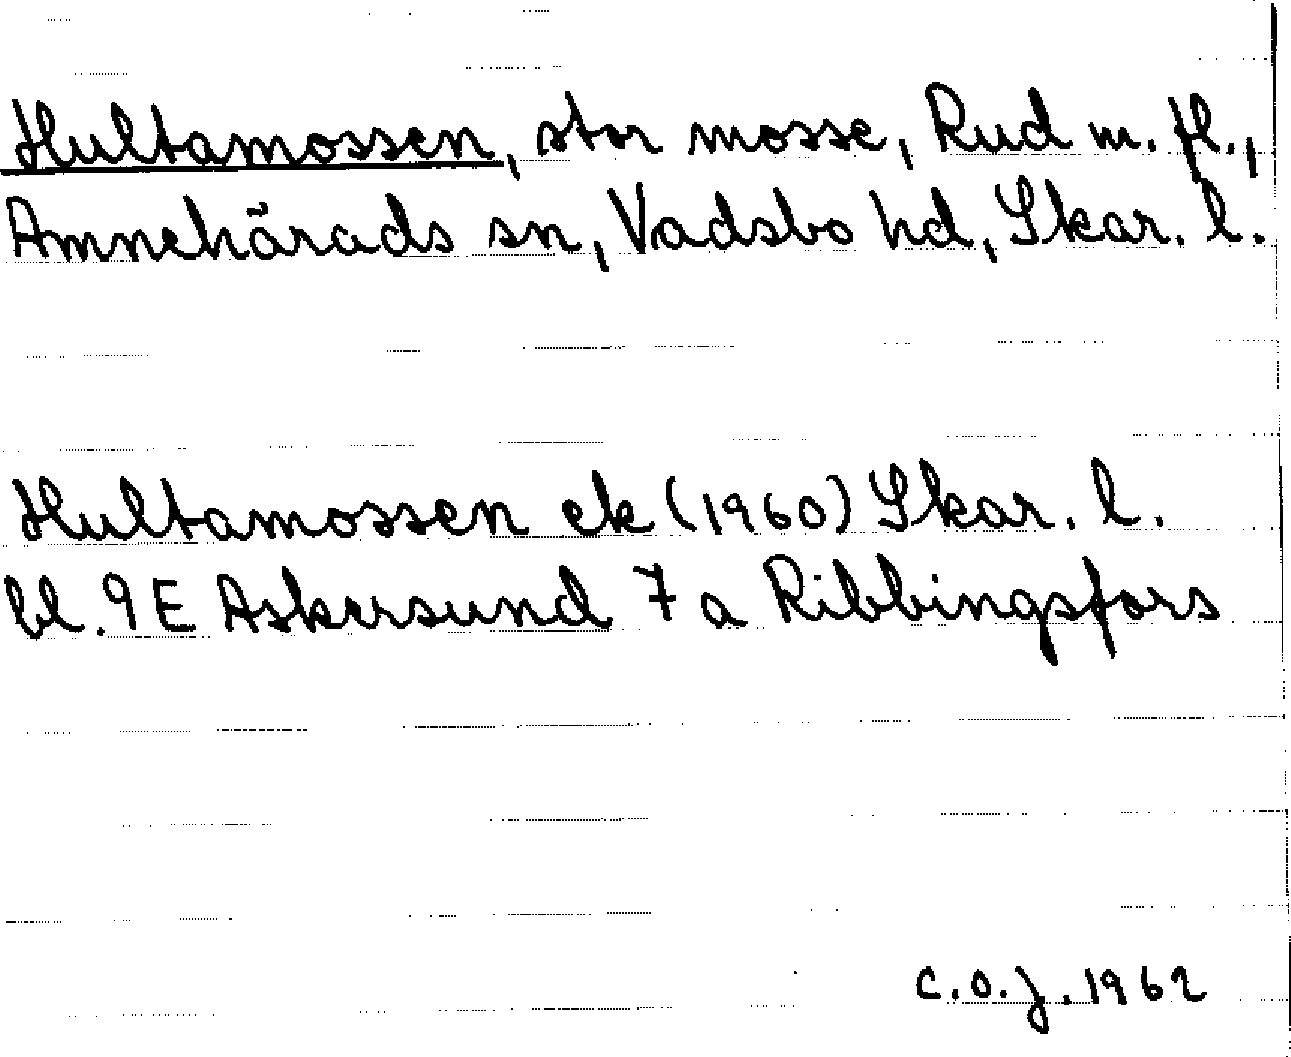 Hultamossen, stor mosse, Rud m. fl.,
Amnehärads sn, Vadsbo hd, Skar. l.
Hultamossen ek (1960) Skar. l.
bl. 9E Askersund 7a Ribbingsfors
C.O.J. 1962